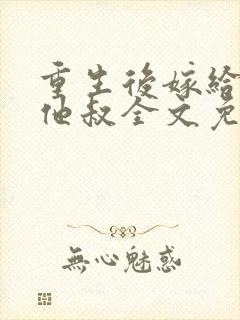 重生後嫁給
他叔全文免
無心魅惑